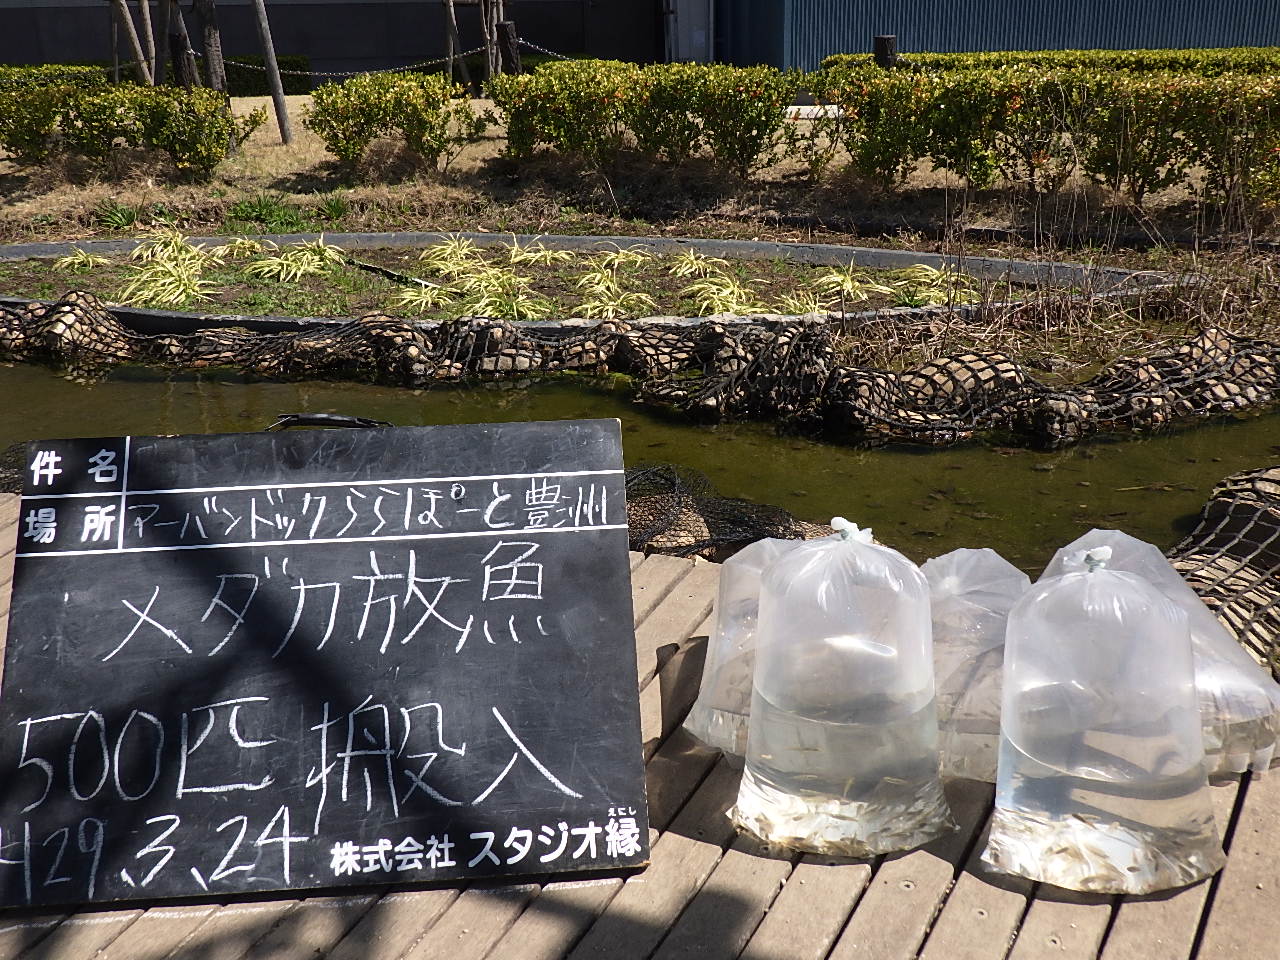 件名
場所 アーバンドックららぽーと豊洲
メダカ放魚
500匹搬入
H29.3.24
えにし
株式会社 スタジオ縁